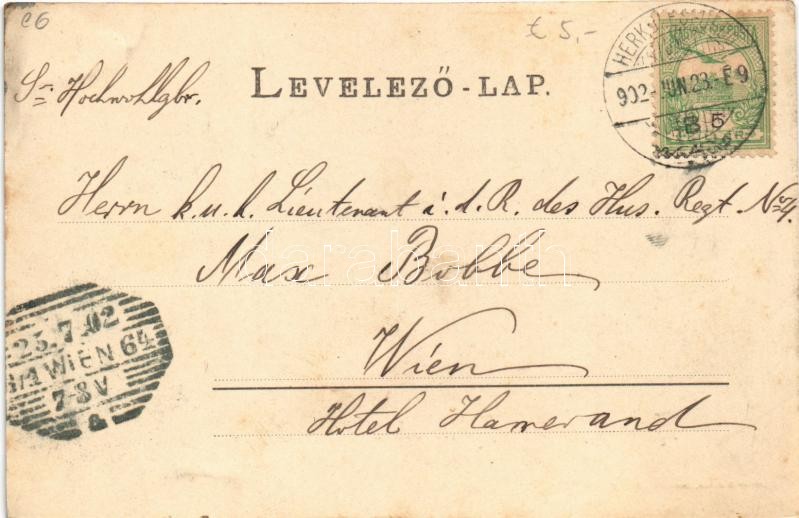 C6
€ 5,-
Sr Hochwohlgbr.
LEVELEZŐ-LAP.
902 JUN. 23. E 9
B 5
Herrn k. u. k. Lieutenant i. d. R. des Hus. Regt. No 4.
Max Bobbe
darabanth
Wien
Hotel Hamerand
23. 7. 02
WIEN 64
7-8 V